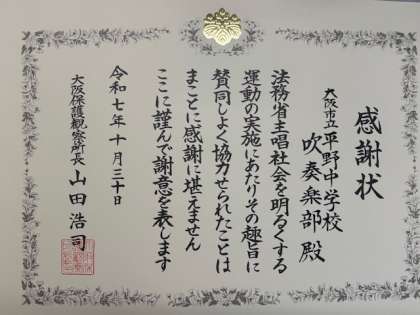 感謝状
大阪市立平野中学校
吹奏楽部殿
法務省主唱社会を明るくする
運動の実施にあたりその趣旨に
賛同しよく協力せられたことは
まことに感謝に堪えません
ここに謹んで謝意を表します
令和七年十月三十日
大阪保護観察所長 山田浩司